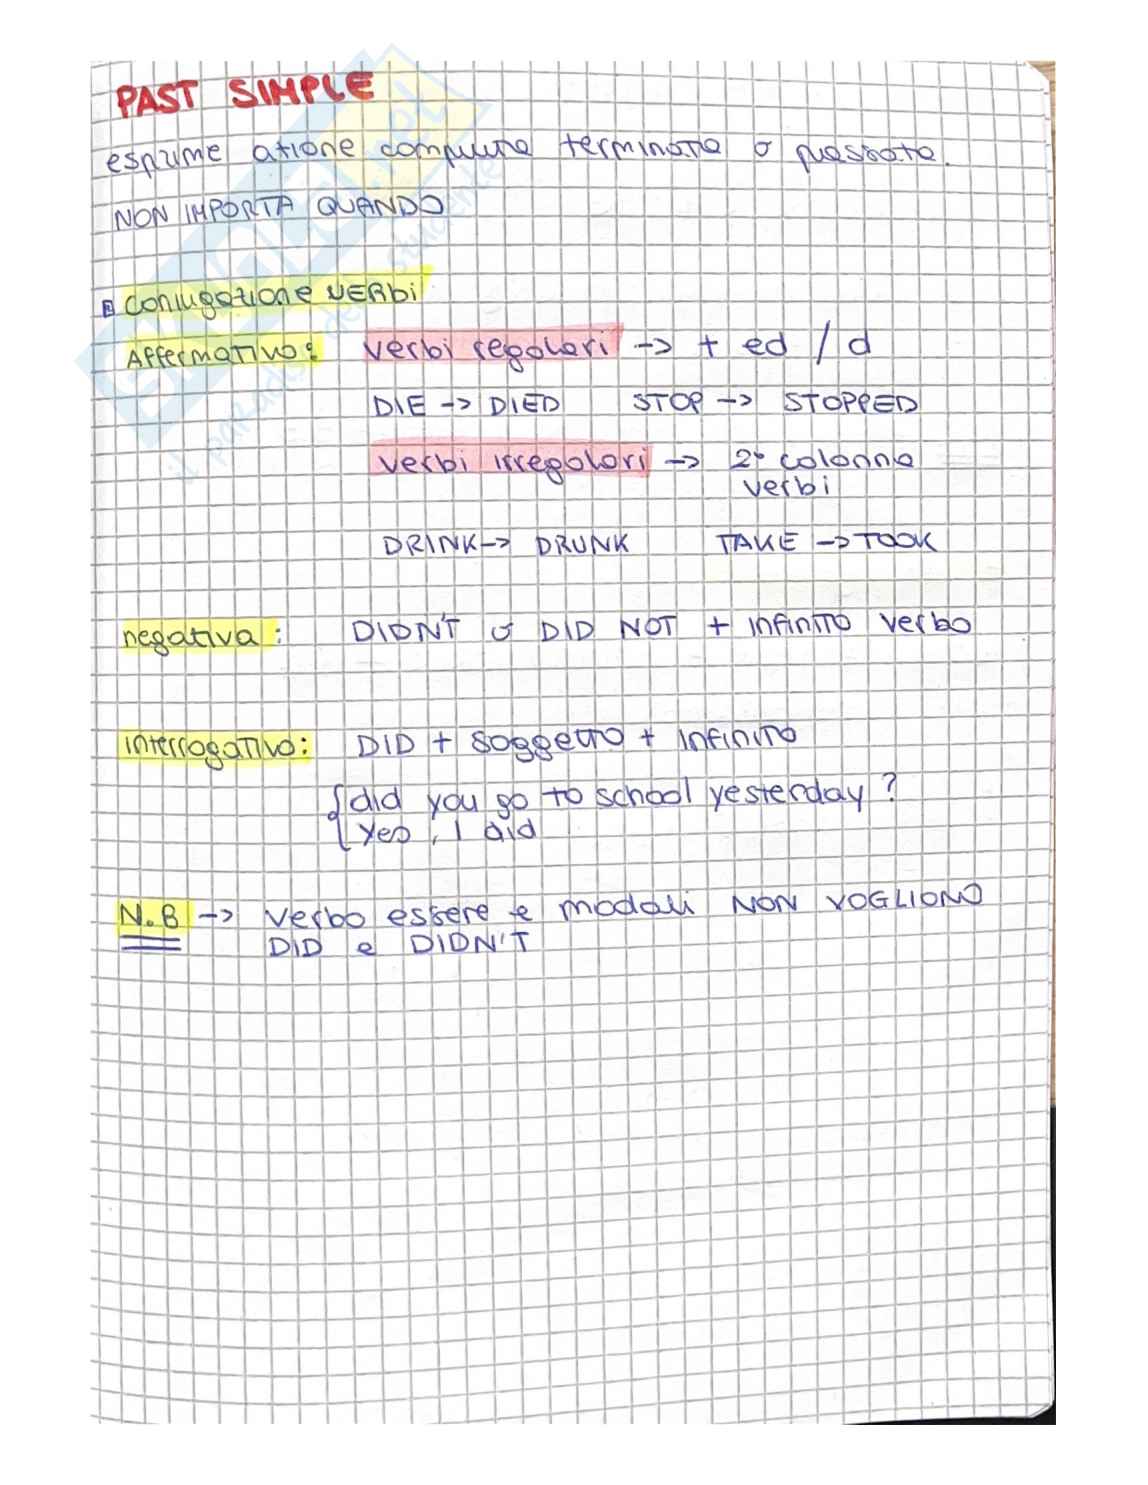 PAST SIMPLE
esprime azione compiuta terminata o passata.
NON IMPORTA QUANDO
Coniugazione VERBI
Affermativo: verbi regolari -> + ed / d
DIE -> DIED STOP -> STOPPED
verbi irregolari -> 2° colonna
verbi
DRINK -> DRUNK TAKE -> TOOK
negativa: DIDN'T o DID NOT + infinito verbo
interrogativo: DID + soggetto + infinito
did you go to school yesterday?
yes, I did
N.B -> verbo essere e modali NON VOGLIONO
DID e DIDN'T
SKUOLA.net
il paradiso dello studente